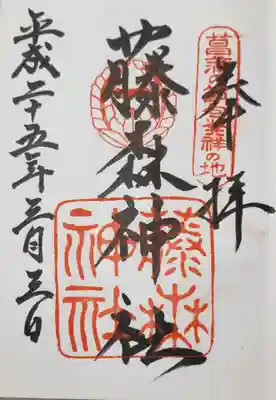 奉拝
菖蒲の節句発祥の地
藤森神社
藤森
神社
平成二十五年三月三日